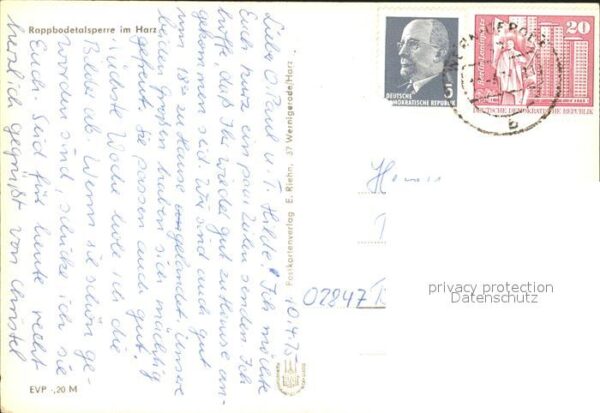 Rappbodetalsperre im Harz
10.4.75
Liebe O. Paul u. T. Hilde! Ich möchte
Euch kurz ein paar Zeilen senden. Ich
hoffe, daß Ihr wieder gut zu Hause an-
gekommen seid. Wir sind auch gut
um 18 zu Hause angelandet. Unsere
beiden Großen haben sich mächtig
gefreut. Sie passen auch gut.
Nächste Woche hole ich die
Bilder ab. Wenn sie schön ge-
worden sind, schicke ich sie
Euch. Seid für heute recht
herzlich gegrüßt von Christel
EVP -,20 M
Postkartenverlag E. Riehn, 37 Wernigerode/Harz
DEUTSCHE
DEMOKRATISCHE REPUBLIK
5
Berlin·Leninplatz
20
DEUTSCHE DEMOKRATISCHE REPUBLIK
WERNIGERODE
b
02847
privacy protection
Datenschutz